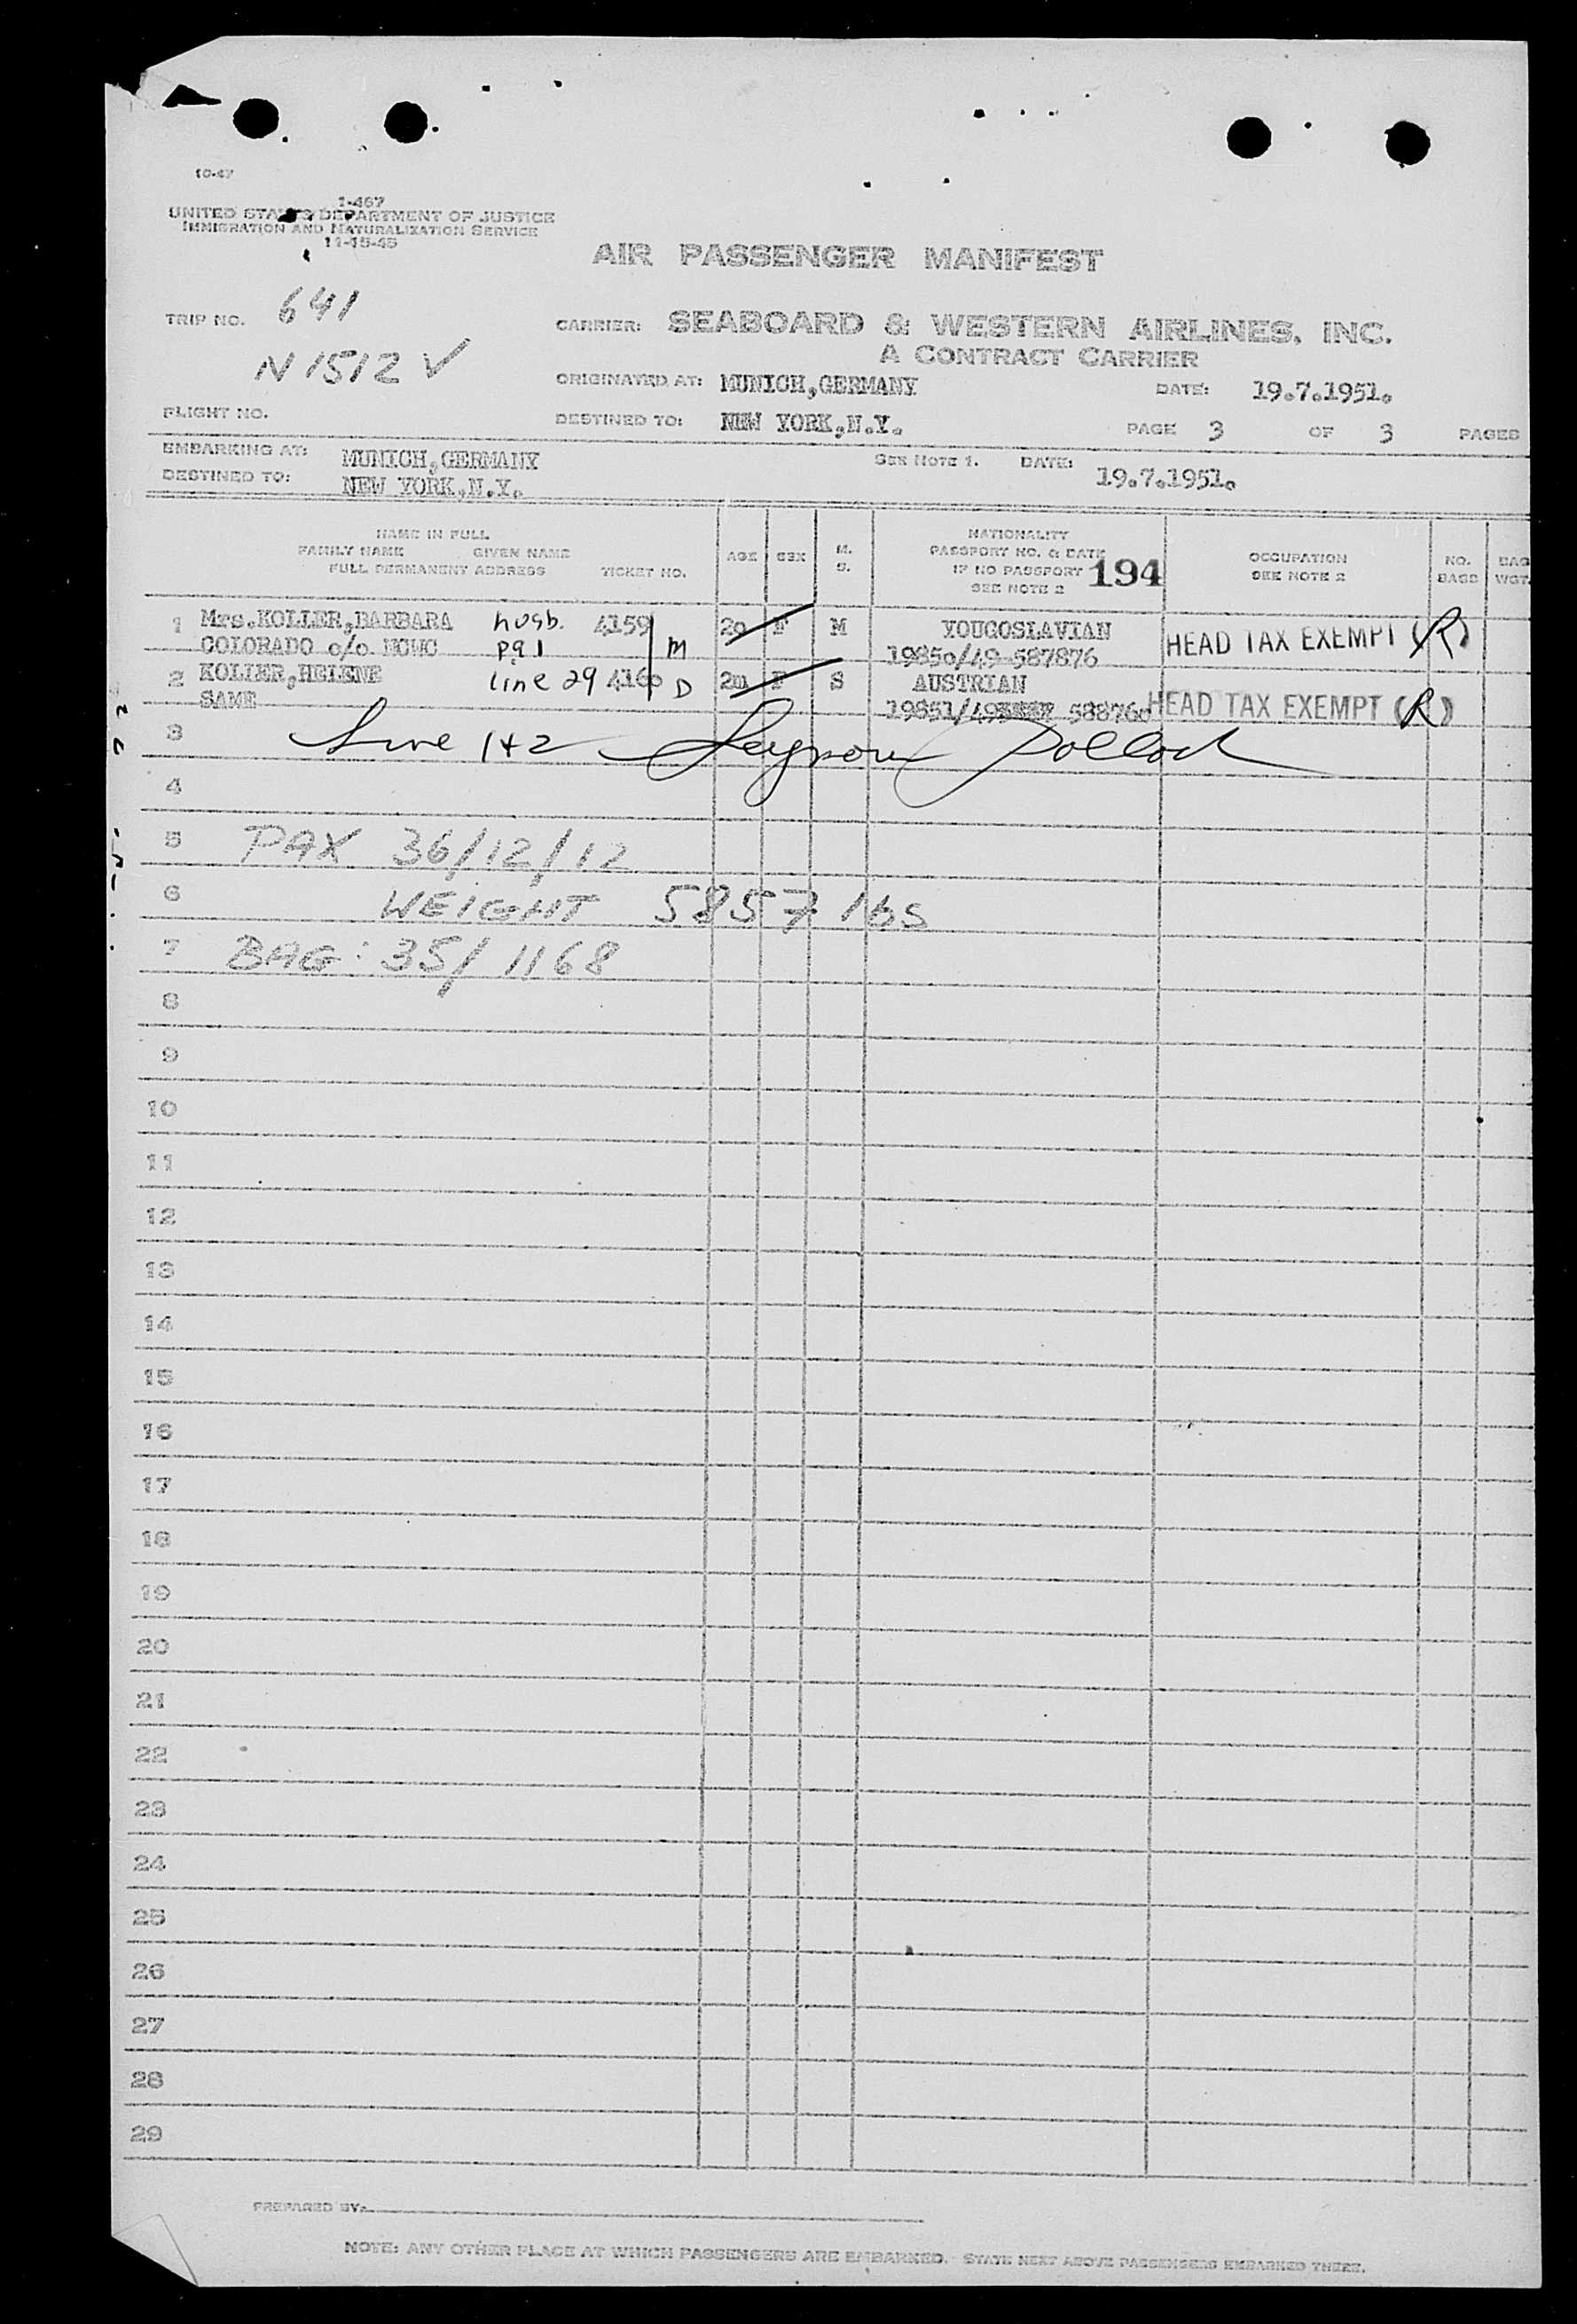 10-47
I-467
UNITED STATES DEPARTMENT OF JUSTICE
IMMIGRATION AND NATURALIZATION SERVICE
11-15-45
AIR PASSENGER MANIFEST
TRIP NO. 641
CARRIER: SEABOARD & WESTERN AIRLINES, INC.
A CONTRACT CARRIER
N1512V
ORIGINATED AT: MUNICH,GERMANY DATE: 19.7.1951.
FLIGHT NO.
DESTINED TO: NEW YORK,N.Y. PAGE 3 OF 3 PAGES
EMBARKING AT: MUNICH,GERMANY SEE NOTE 1. DATE: 19.7.1951.
DESTINED TO: NEW YORK,N.Y.
NAME IN FULL
FAMILY NAME GIVEN NAME
FULL PERMANENT ADDRESS TICKET NO.
AGE SEX M. S.
NATIONALITY
PASSPORT NO. & DATE
IF NO PASSPORT
SEE NOTE 2
194
OCCUPATION
SEE NOTE 2
NO. BAGS
BAG WGT.
1 Mrs.KOLLER,BARBARA husb. 4159 M 2o F M YOUGOSLAVIAN HEAD TAX EXEMPT (R)
COLORADO c/o NCWC pg1 1985o/49 587876
2 KOLLER,HELENE line 29 416o D 2m F S AUSTRIAN HEAD TAX EXEMPT (R)
SAME 19851/49 58876o
3 Line 1+2 Seymour Pollock
4
5 PAX 36/12/12
6 WEIGHT 5857 lbs
7 BAG: 35/1168
8
9
10
11
12
13
14
15
16
17
18
19
20
21
22
23
24
25
26
27
28
29
PREPARED BY:
NOTE: ANY OTHER PLACE AT WHICH PASSENGERS ARE EMBARKED. STATE NEXT ABOVE PASSENGERS EMBARKED THERE.